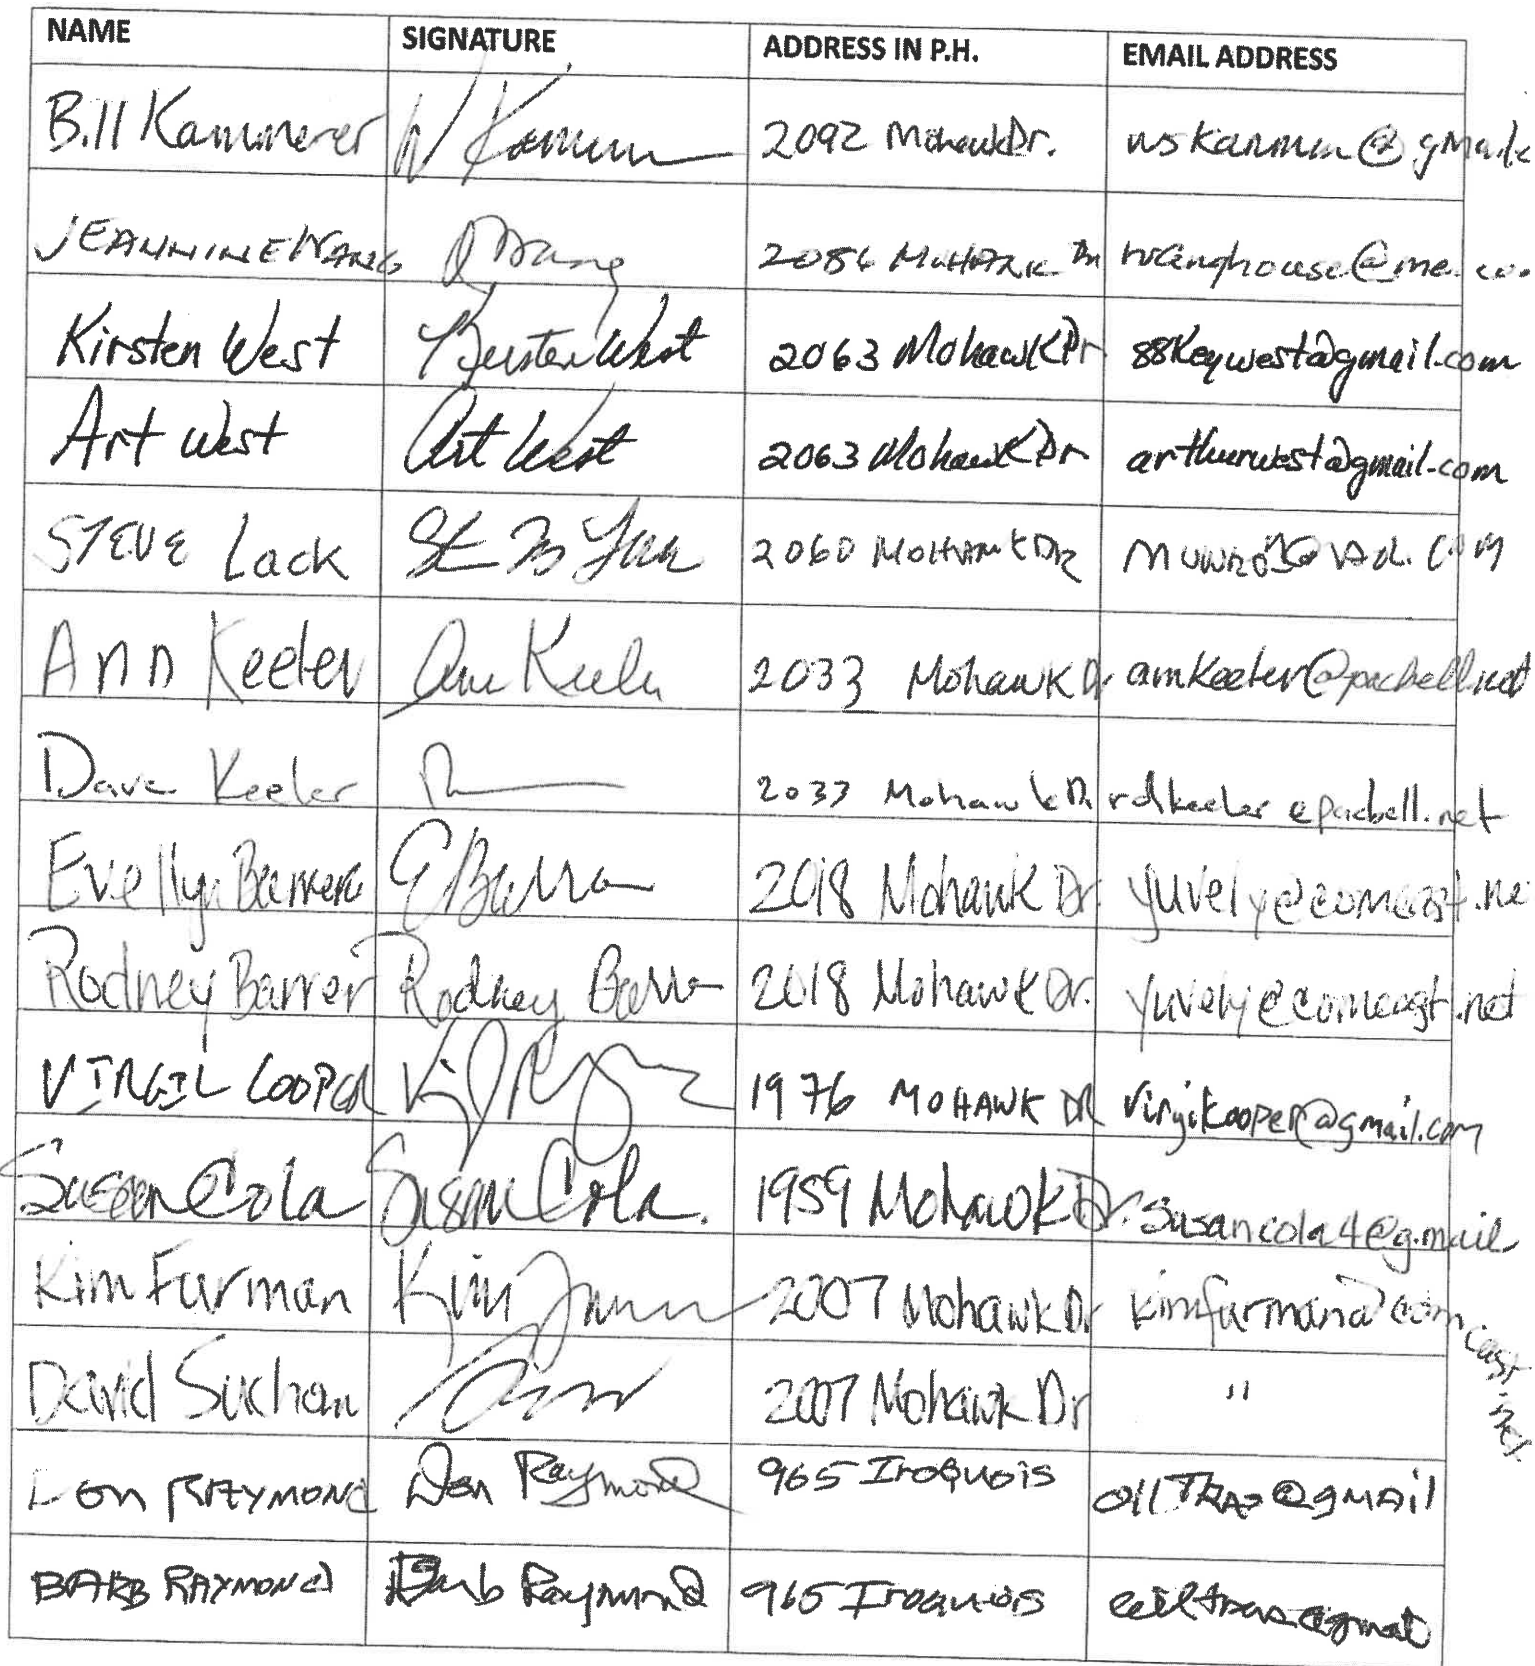 NAME SIGNATURE ADDRESS IN P.H. EMAIL ADDRESS
Bill Kammerer 2092 Mohawk Dr.
JEANNINE WANG 2086 MOHAWK Dr wanghouse@me.co
Kirsten West Kirsten West 2063 Mohawk Dr 88keywest@gmail.com
Art West Art West 2063 Mohawk Dr arthurwest@gmail.com
STEVE Lack 2060 MOHAWK DR
Ann Keeler Ann Keeler 2033 Mohawk Dr amkeeler@pacbell.net
Dave Keeler 2033 Mohawk Dr rdkeeler@pacbell.net
Evellyn Barrera 2018 Mohawk Dr. yuvely@comcast.ne
Rodney Barrer Rodney 2018 Mohawk Dr. yuvely@comcast.net
VIRGIL COOPER 1976 MOHAWK DR virgilcooper@gmail.com
Susan Cola Susan Cola. 1959 Mohawk Dr. susancola4@g.mail
Kim Furman Kim 2007 Mohawk Dr kimfurman@comcast.net
David Sucham 2007 Mohawk Dr "
DON RAYMOND Don Raymond 965 Iroquois @gmail
BARB RAYMOND Barb Raymond 965 Iroquois